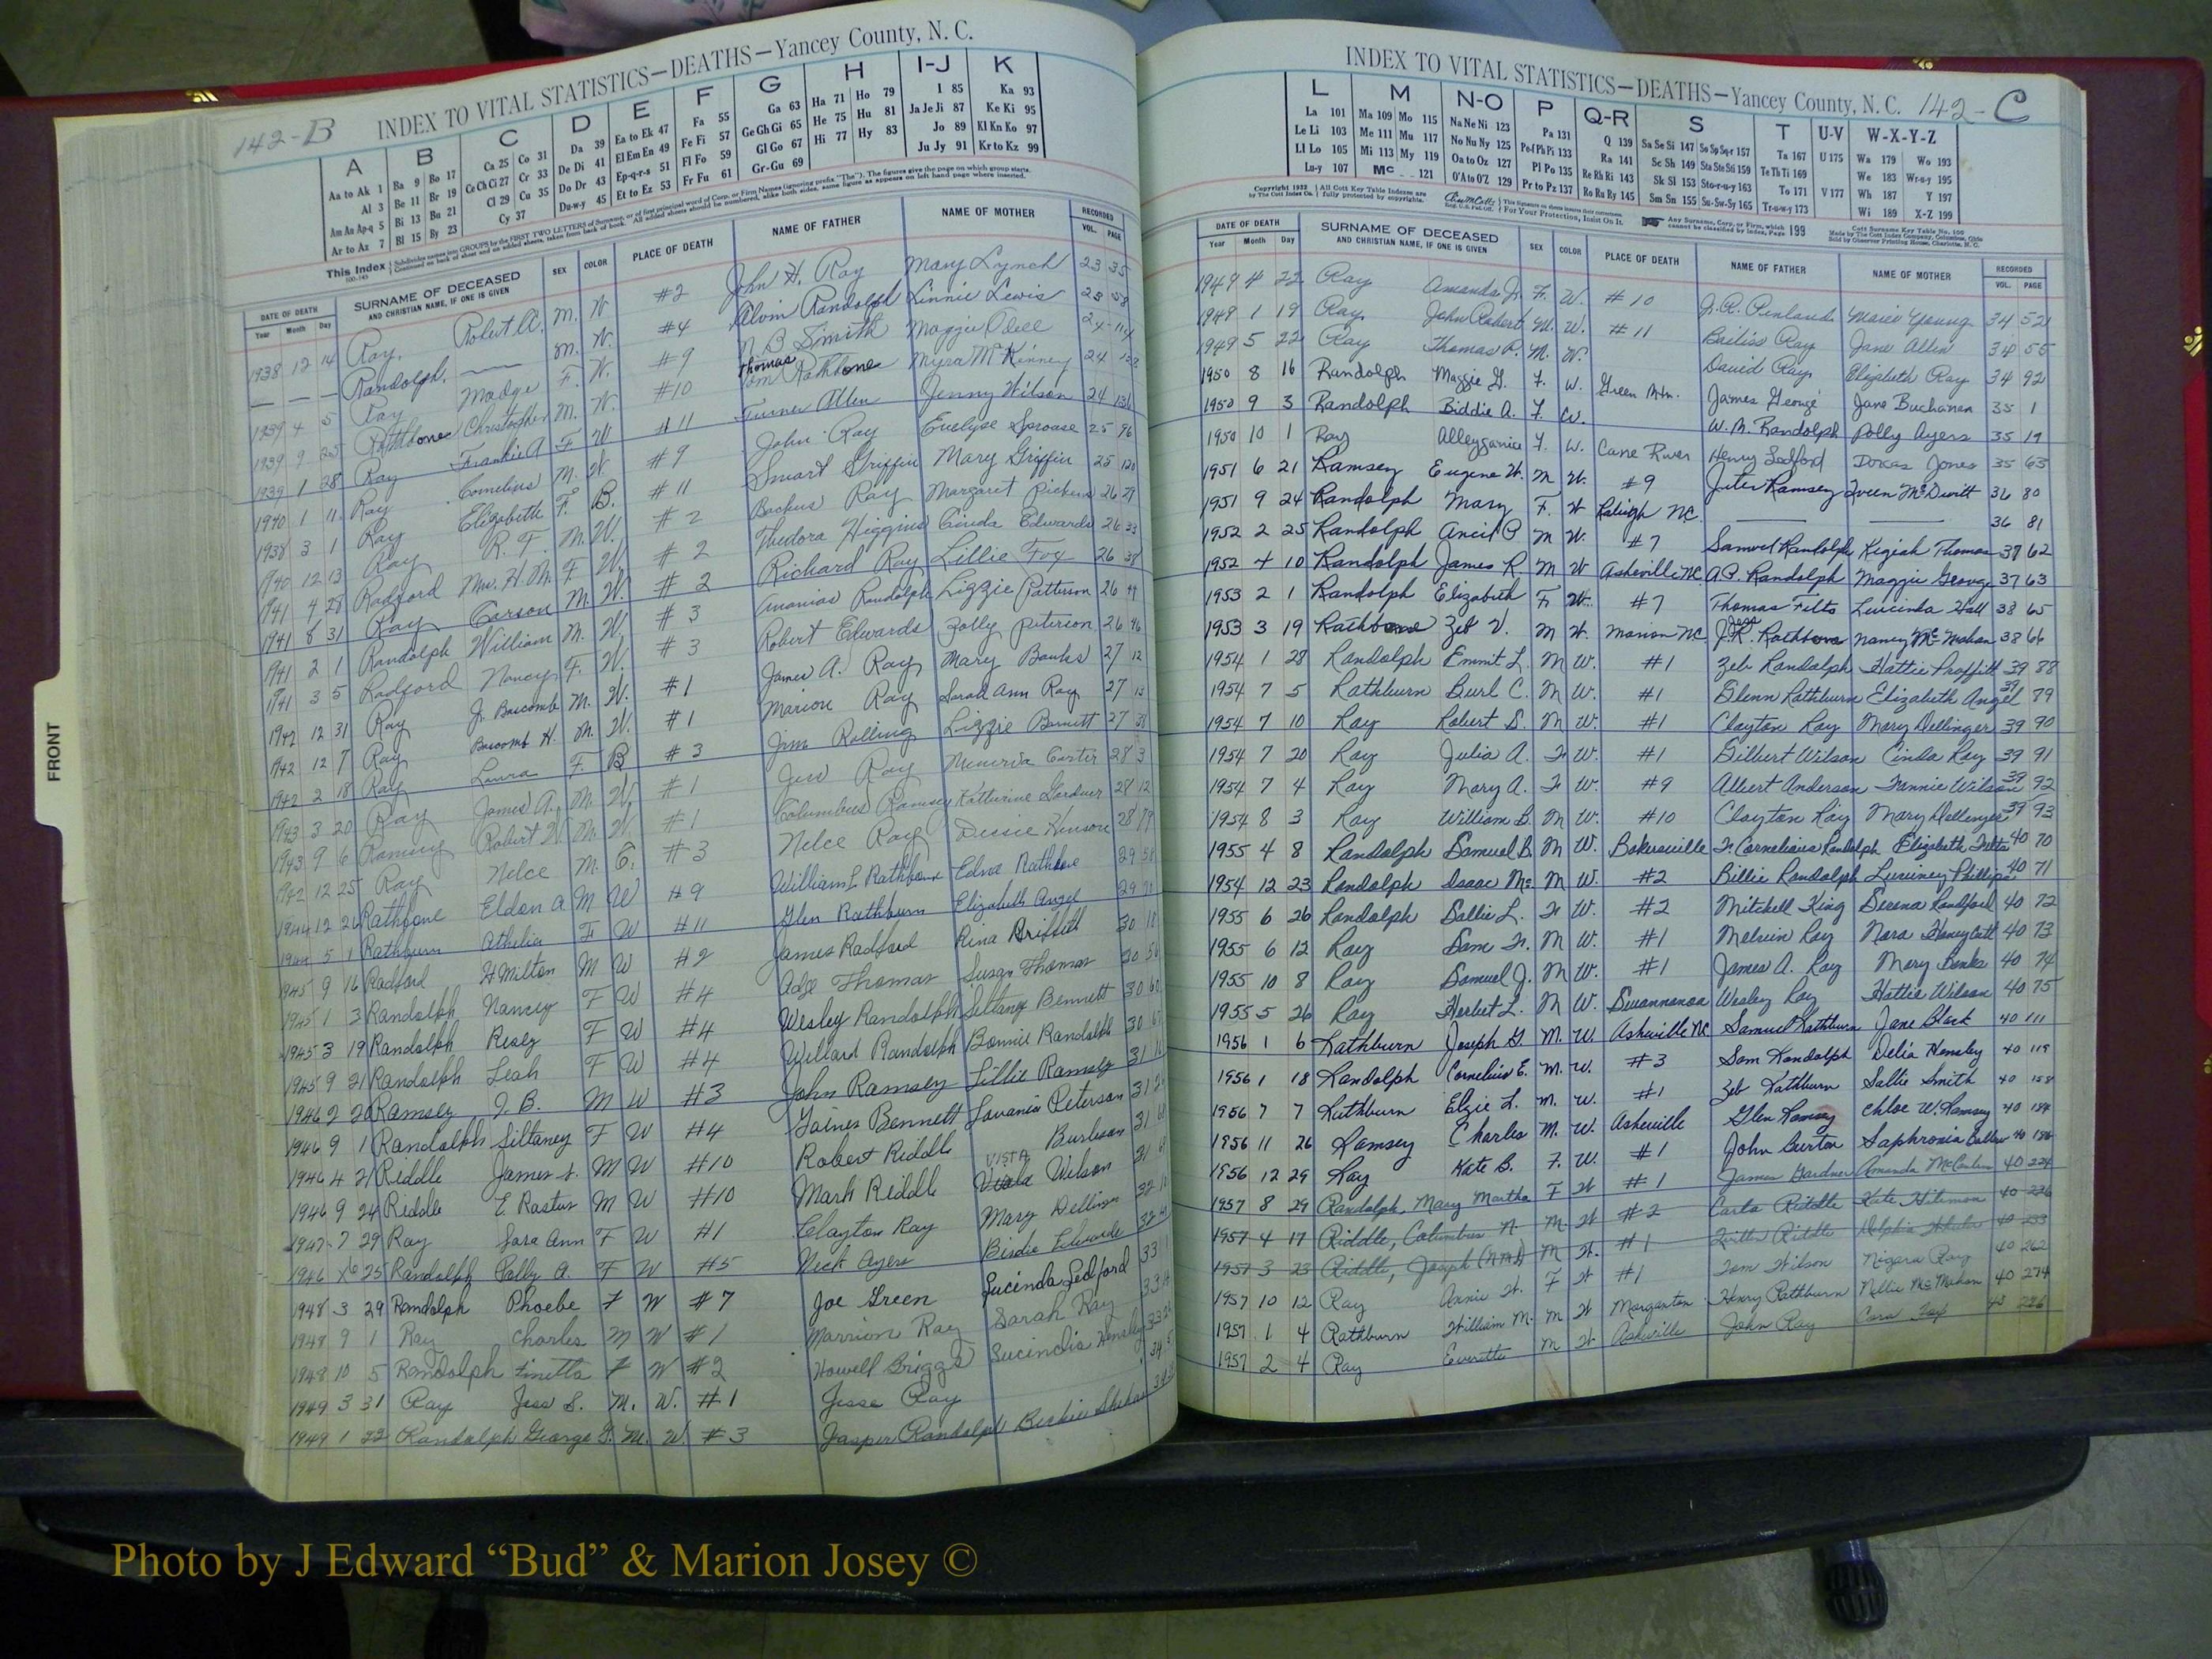 142-B
INDEX TO VITAL STATISTICS—DEATHS—Yancey County, N. C.
A B C D E F G H I-J K
Aa to Ak 1 Ba 9 Bo 17 Ca 25 Co 31 Da 39 Ea to Ek 47 Fa 55 Ga 63 Ha 71 Ho 79 I 85 Ka 93
Al 3 Be 11 Br 19 Ce Ch Ci 27 Cr 33 De Di 41 El Em En 49 Fe Fi 57 Ge Gh Gi 65 He 75 Hu 81 Ja Je Ji 87 Ke Ki 95
Am An Ap-q 5 Bi 13 Bu 21 Cl 29 Cu 35 Do Dr 43 Ep-q-r-s 51 Fl Fo 59 Gl Go 67 Hi 77 Hy 83 Jo 89 Kl Kn Ko 97
Ar to Az 7 Bl 15 By 23 Cy 37 Du-w-y 45 Et to Ez 53 Fr Fu 61 Gr-Gu 69 Ju Jy 91 Kr to Kz 99
This Index
DATE OF DEATH SURNAME OF DECEASED SEX COLOR PLACE OF DEATH NAME OF FATHER NAME OF MOTHER RECORDED
Year Month Day AND CHRISTIAN NAME, IF ONE IS GIVEN VOL. PAGE
1938 12 14 Ray, Robert A. M. W. #2 John H. Ray Mary Lynch 23 35
— — — Randolph, —— M. W. #4 Alvin Randolph Linnie Lewis 23 58
1939 4 5 Ray Madge F. W. #9 N B Smith Maggie Odell 24
1939 9 25 Rathbone Christopher M. W. #10 Thomas Rathbone Myra McKinney 24
1939 1 28 Ray Frankie A F W #11 Turner Allen Jenny Wilson 24
1940 1 11 Ray Cornelius M. W #9 John Ray Evelyse Sprouse 25 96
1938 3 1 Ray Elizabeth F. B. #11 Smart Griffin Mary Griffin 25 120
1940 12 13 Ray R. F. M. W. #2 Backus Ray Margaret 26
1941 4 28 Radford Mrs. H. M. F W. #2 Thedora Higgins Cinda Edwards 26 33
1941 8 31 Ray Carson M. W. #2 Richard Ray Lillie Fox 26 38
1941 2 1 Randolph William M. W. #3 Ananias Randolph Lizzie Patterson 26
1941 3 5 Radford Nancy F. W. #3 Robert Edwards Polly Peterson 26 46
1942 12 31 Ray J. Bascomb M. W. #1 James A. Ray Mary Banks 27 12
1942 12 7 Ray Bascomb H. M. W. #1 Marion Ray Sarah Ann Ray 27 13
1942 2 18 Ray Laura F. B #3 Jim Rolling Lizzie Barnett 27 38
1943 3 20 Ray James A. M. W. #1 Jess Ray Menerva Carter 28 3
1943 9 6 Ramsey Robert W. M. W. #1 Columbus Ramsey Katherine Gardner 28 12
1942 12 25 Ray Nelce M. C. #3 Nelce Ray Dessie Henson 28 79
1944 12 26 Rathbone Eldon A M W #9 William L Rathbone Edna Rathbone 29
1944 5 1 Rathburn Athelia F W #11 Glen Rathburn Elizabeth Angel 29
1945 9 16 Radford H Milton M W #2 James Radford Rina Griffith 30 18
1945 1 3 Randolph Nancy F W #4 Adze Thomas Susan Thomas 30 56
1945 3 19 Randolph Resey F W #4 Wesley Randolph Siltany Bennett 30 60
1945 9 21 Randolph Leah F W #4 Willard Randolph Bonnie Randolph 30
1946 2 20 Ramsey, J. B. M W #3 John Ramsey Lillie Ramsey 31
1946 9 1 Randolph, Siltaney F W #4 Gaines Bennett Lovania Peterson 31
1946 4 21 Riddle James L. M W #10 Robert Riddle Burleson 31
1946 9 24 Riddle E Rastus M W #10 Mark Riddle Vista Wilson
1947 7 29 Ray Sara Ann F W #1 Clayton Ray Mary Dellinger 32
1946 25 Randolph Polly A. F W #5 Nick Ayers Birdie Edwards 32
1948 3 29 Randolph Phoebe F W #7 Joe Green Lucinda Ledford 33 1
1948 9 1 Ray Charles M W #1 Marrion Ray Sarah Ray 33
1948 10 5 Randolph Finetta F W #2 Howell Briggs Lucindia Hensley 33
1949 3 31 Ray Jess S. M. W. #1 Jesse Ray 34
1949 1 22 Randolph George M. W. #3 Jasper Randolph
FRONT
INDEX TO VITAL STATISTICS—DEATHS—Yancey County, N. C. 142-C
L M N-O P Q-R S T U-V W-X-Y-Z
La 101 Ma 109 Mo 115 Na Ne Ni 123 Pa 131 Q 139 Sa Se Si 147 So Sp Sq-r 157 Ta 167 U 175 Wa 179 Wo 193
Le Li 103 Me 111 Mu 117 No Nu Ny 125 Pe-f Ph Pi 133 Ra 141 Sc Sh 149 Sta Ste Sti 159 Te Th Ti 169 We 183 Wr-u-y 195
Ll Lo 105 Mi 113 My 119 Oa to Oz 127 Pl Po 135 Re Rh Ri 143 Sk Sl 153 Sto-r-u-y 163 To 171 V 177 Wh 187 Y 197
Lu-y 107 Mc 121 O'A to O'Z 129 Pr to Pz 137 Ro Ru Ry 145 Sm Sn 155 Su-Sw-Sy 165 Tr-u-w-y 173 Wi 189 X-Z 199
DATE OF DEATH SURNAME OF DECEASED SEX COLOR PLACE OF DEATH NAME OF FATHER NAME OF MOTHER RECORDED
Year Month Day AND CHRISTIAN NAME, IF ONE IS GIVEN VOL. PAGE
1949 4 22 Ray Amanda J. F. W. #10 J. R. Penland Marie Young 34 52
1949 1 19 Ray John Robert M. W. #11 Bailiss Ray Jane Allen 34 55
1949 5 22 Ray Thomas R. M. W. David Ray Elizabeth Ray 34 92
1950 8 16 Randolph Maggie G. F. W. Green Mtn. James George Jane Buchanan 35 1
1950 9 3 Randolph Biddie A. F. W. W. M. Randolph Polly Ayers 35 19
1950 10 1 Ray F. W. Cane River Henry Ledford Dorcas Jones 35 63
1951 6 21 Ramsey Eugene W. M W. #9 Jeter Ramsey Queen McDevitt 36 80
1951 9 24 Randolph Mary F. W Raleigh NC. —— —— 36 81
1952 2 25 Randolph Ancil P M W. #7 Samuel Randolph Keziah Thomas 37 62
1952 4 10 Randolph James R. M W Asheville NC. A.P. Randolph Maggie George 37 63
1953 2 1 Randolph Elizabeth F. W. #7 Thomas Filts Lucinda Hall 38 65
1953 3 19 Rathbone Zeb V. M W. Marion NC Jess R. Rathbone Nancy McMahan 38 66
1954 1 28 Randolph Emmit L. M W. #1 Zeb Randolph Hattie Proffitt 39 88
1954 7 5 Rathburn Burl C. M W. #1 Glenn Rathburn Elizabeth Angel 39 79
1954 7 10 Ray Robert S. M W. #1 Clayton Ray Mary Dellinger 39 90
1954 7 20 Ray Julia A. F W. #1 Gilbert Wilson Cinda Ray 39 91
1954 7 4 Ray Mary A. F W. #9 Albert Anderson Fannie Wilson 39 92
1954 8 3 Ray William B. M W. #10 Clayton Ray Mary Dellinger 39 93
1955 4 8 Randolph Samuel B. M W. Bakersville Fr. Cornelious Randolph Elizabeth Felts 40 70
1954 12 23 Randolph Isaac Mc. M W. #2 Billie Randolph Luviney Phillips 40 71
1955 6 26 Randolph Sallie L. F W. #2 Mitchell King Serena Randford 40 72
1955 6 12 Ray Sam Fr. M W. #1 Melvin Ray Nora Honeycutt 40 73
1955 10 8 Ray Samuel J. M W. #1 James A. Ray Mary Banks 40 74
1955 5 26 Ray Herbert L. M W. Swannanoa Wesley Ray Hattie Wilson 40 75
1956 1 6 Rathburn Joseph G. M. W. Asheville NC Samuel Rathburn Jane Black 40 111
1956 1 18 Randolph Cornelius E. M. W. #3 Sam Randolph Delia Hensley 40 119
1956 7 7 Rathburn Elzie L. M. W. #1 Zeb Rathburn Sallie Smith 40 158
1956 11 26 Ramsey Charles M. W. Asheville Glen Ramsey Chloe W. Ramsey 40 184
1956 12 29 Ray Kate B. F. W. #1 John Burton Saphronia 40
1957 8 29 Randolph, Mary Martha F W #1 James Gardner Amanda 40 224
1957 4 17 Riddle, Columbus N. M W #2 Riddle Kate Hileman 40 226
1957 3 23 Riddle, Joseph M W. #1 Riddle Delphia 40 233
1957 10 12 Ray Annie W. F W #1 Tom Wilson Niagara Ray 40 262
1957 1 4 Rathburn William M. M W Morganton Henry Rathburn Nellie McMahan 40 274
1957 2 4 Ray Everette M W Asheville John Ray Cora 286
Photo by J Edward “Bud” & Marion Josey ©